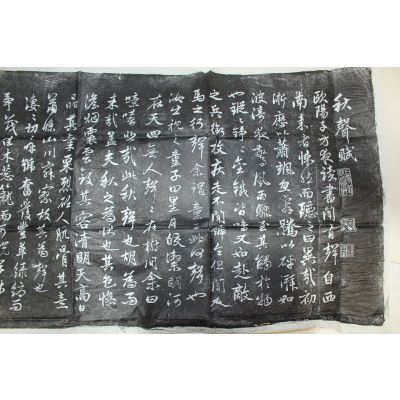 秋聲賦
歐陽子方夜讀書聞有聲自西
南來者悚然而聽之曰異哉初
淅瀝以蕭颯忽奔騰以砰湃如
波濤夜驚風雨驟至其觸於物
也鏦鏦錚錚金鐵皆鳴又如赴敵
之兵銜枚疾走不聞號令但聞人
馬之行聲余謂童子此何聲也
汝出視之童子曰星月皎潔明河
在天四無人聲聲在樹間余曰
噫嘻悲哉此秋聲也胡為而
來哉蓋夫秋之為狀也其色慘
澹煙霏雲斂其容清明天高日
晶其氣栗冽砭人肌骨其意
蕭條山川寂寥故其為聲也
淒淒切切呼號奮發豐草綠縟而
爭茂佳木蔥蘢而可悅草